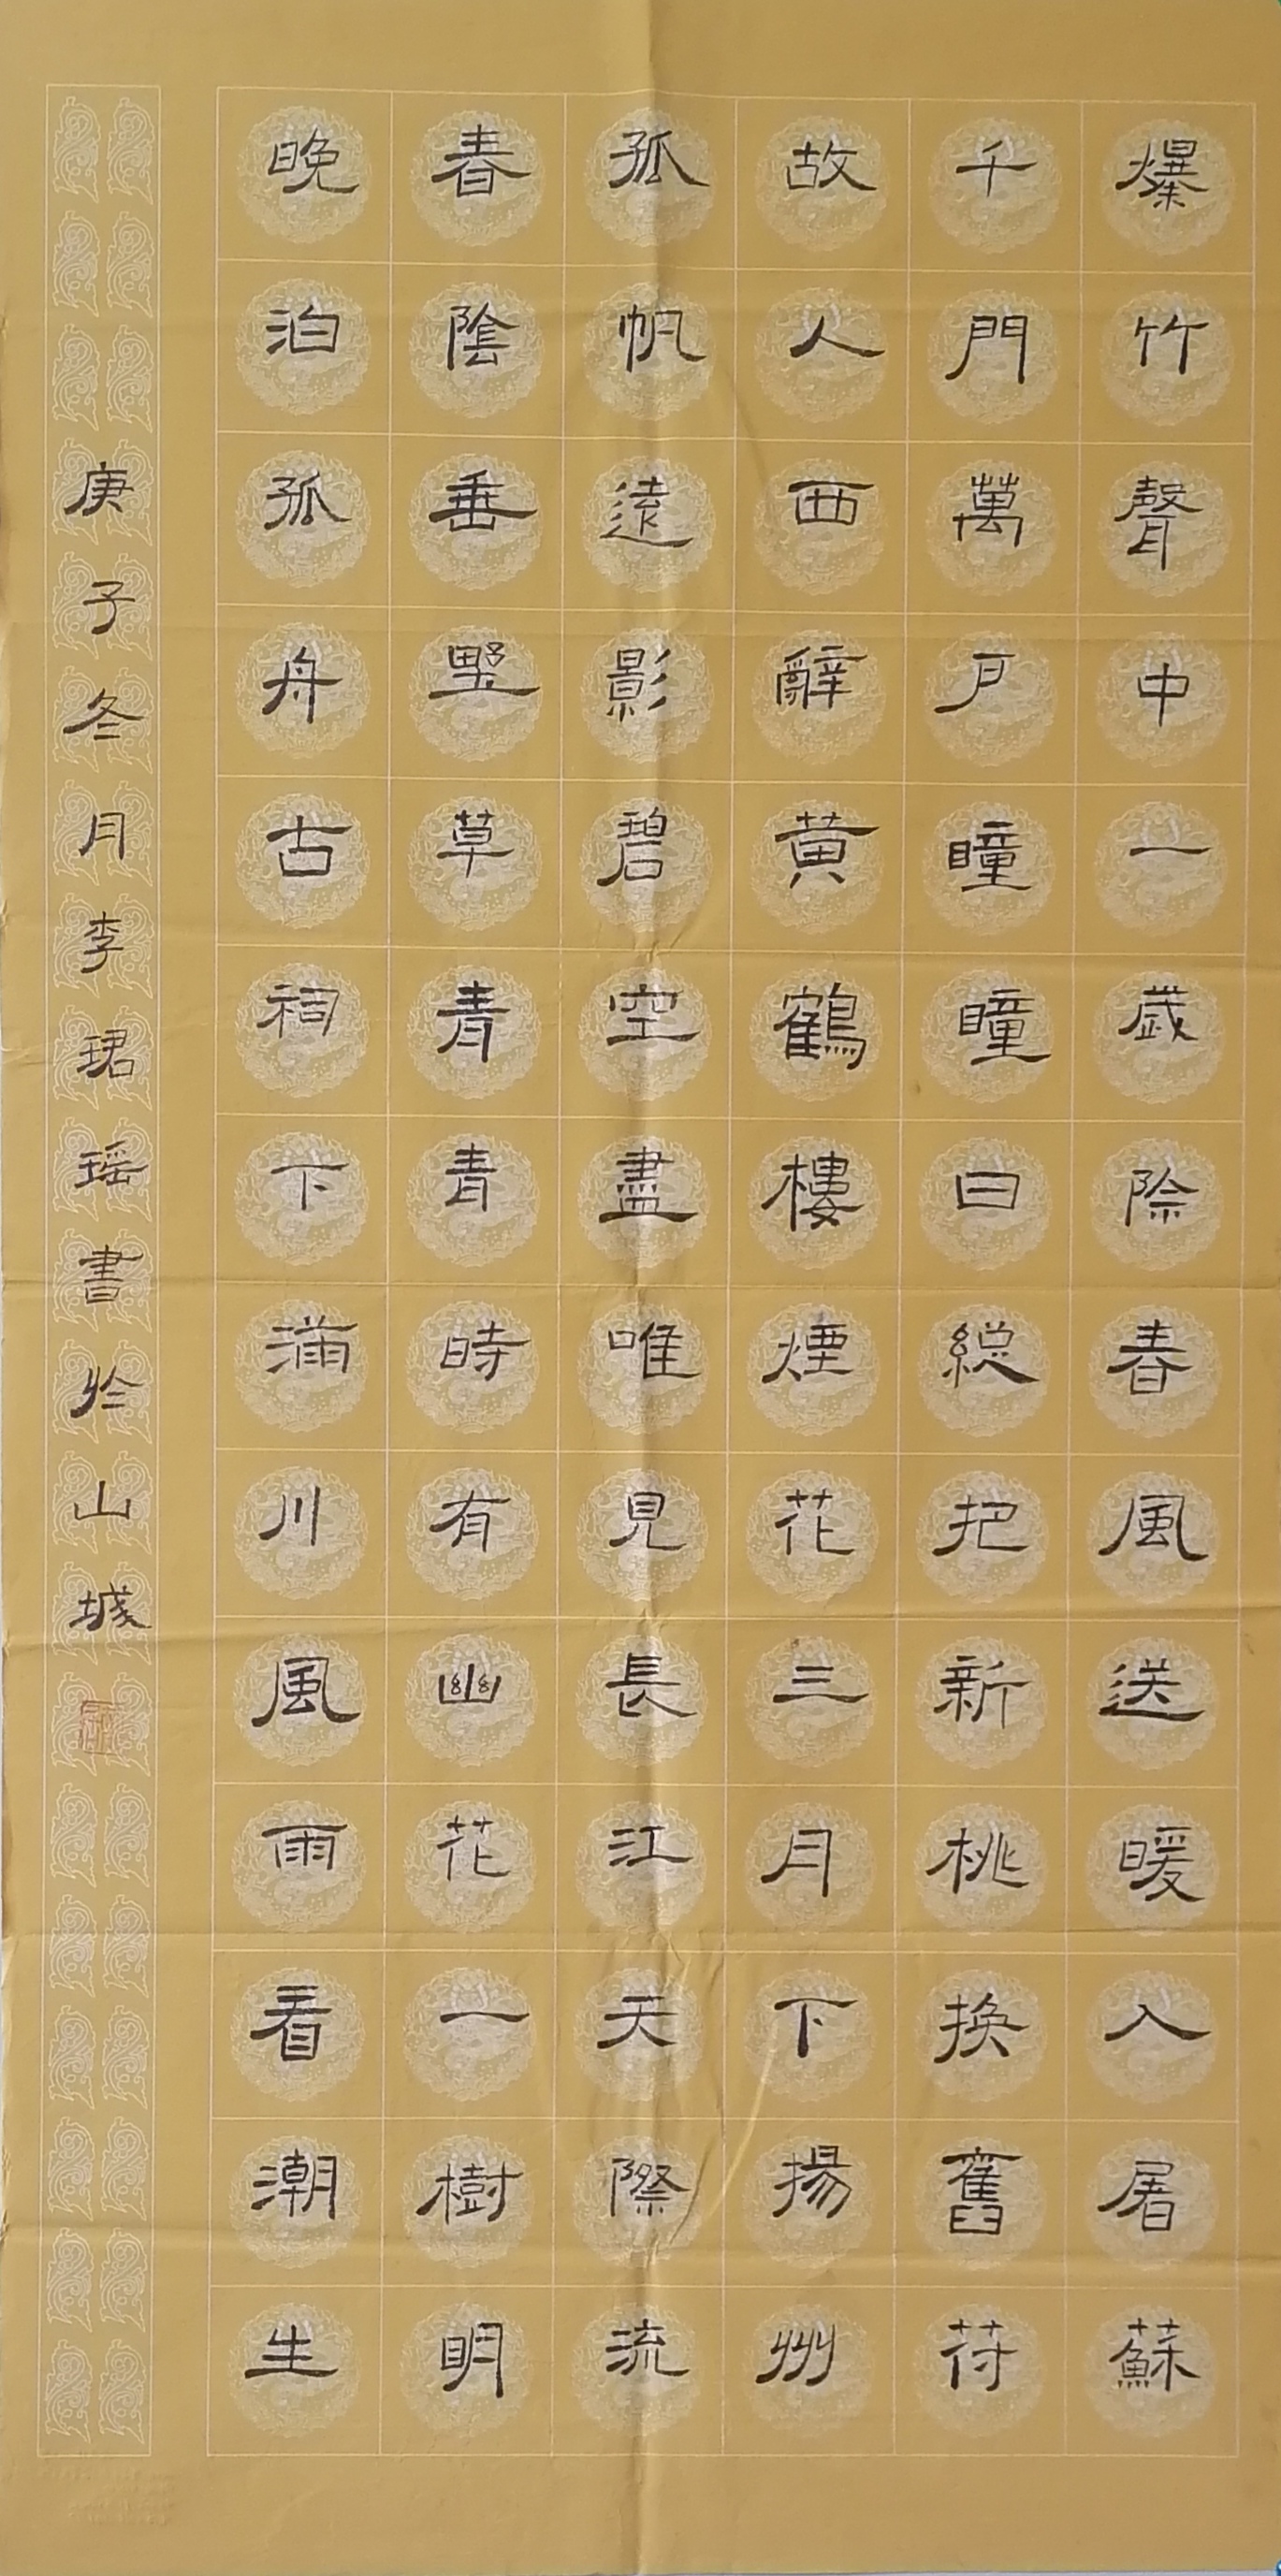 爆竹聲中一歲除春風送暖入屠蘇
千門萬戶瞳瞳日緫把新桃換舊苻
故人西辭黃鶴樓煙花三月下揚州
孤帆遠影碧空盡唯見長江天際流
春陰垂墅草青青時有幽花一樹明
晚泊孤舟古祠下滿川風雨看潮生
庚子冬月李珺瑶書於山城